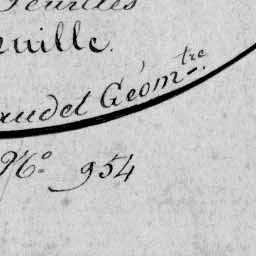 Feuilles
euille.
audel Géom.tre
N.o 954